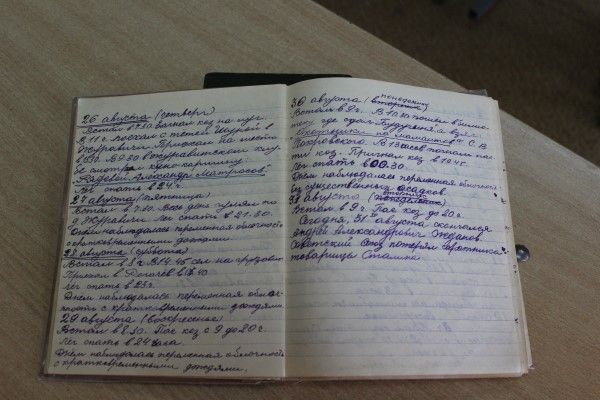 26 августа (четверг)
Встал в 7.30 выгнал коз на луг.
В 11 ч. поехал с тетей Шурой в
Журавичи. Приехал на место
в 0.10. В 9.30 в Журавичском клу-
бе смотрел кинокартину:
"Рядовой Александр Матросов".
Лег спать в 24 ч.
27 августа (пятница)
Встал в 7.30. Весь день гулял по
г. Журавичи. Лег спать в 21.30.
Днем наблюдалась переменная облачность
с кратковременными дождями.
28 августа (суббота)
Встал в 8 ч. В 14.45 сел на грузовик
Приехал в Довск в 15.40
Лег спать в 23 ч.
Днем наблюдалась переменная облач-
ность с кратковременными дождями.
29 августа (воскресенье)
Встал в 8.30. Пас коз с 9 до 20 ч.
Лег спать в 24 часа.
Днем наблюдалась переменная облачность
с кратковременными дождями.
понедельник
30 августа (вторник)
Встал в 9 ч. В 10.30 пошел в библио-
теку где сдал и взял
С.В.
Покровского. В 13 часов погнал пас-
ти коз. Пригнал коз в 19 ч.
Лег спать в 00.30.
Днем наблюдалась переменная облачность
без существенных осадков.
вторник
31 августа (понедельник)
Встал в 9 ч. Пас коз до 20 ч.
Сегодня, 31 августа скончался
Андрей Александрович Жданов.
Советский Союз потерял соратника
товарища Сталина